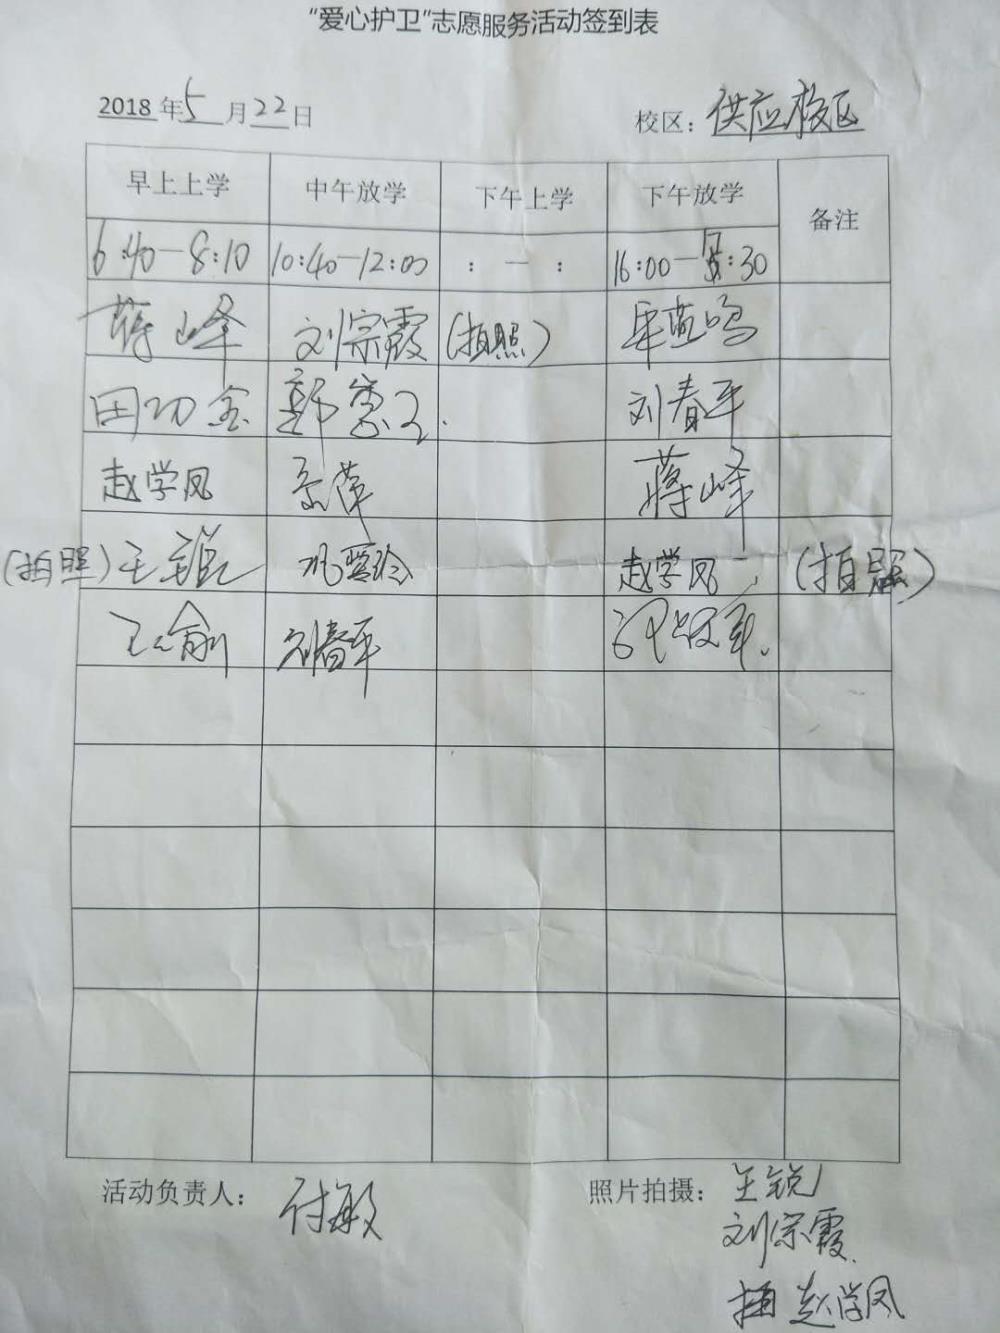 “爱心护卫”志愿服务活动签到表
2018年5月22日 校区：供应校区
早上上学 中午放学 下午上学 下午放学 备注
6:40—8:10 10:40—12:00 : — : 16:00—17:30
蒋峰 刘宗霞 (拍照)
田功金 刘春平
赵学凤 蒋峰
(拍照) 王锐 赵学凤 (拍照)
刘春平
活动负责人： 付敏 照片拍摄： 王锐
刘宗霞
赵学凤